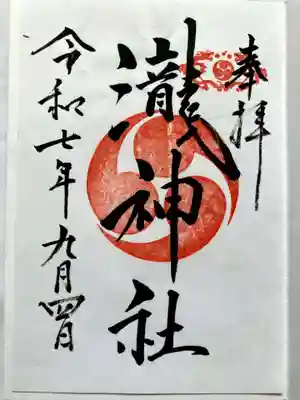 奉拝
瀧神社
令和七年九月四日